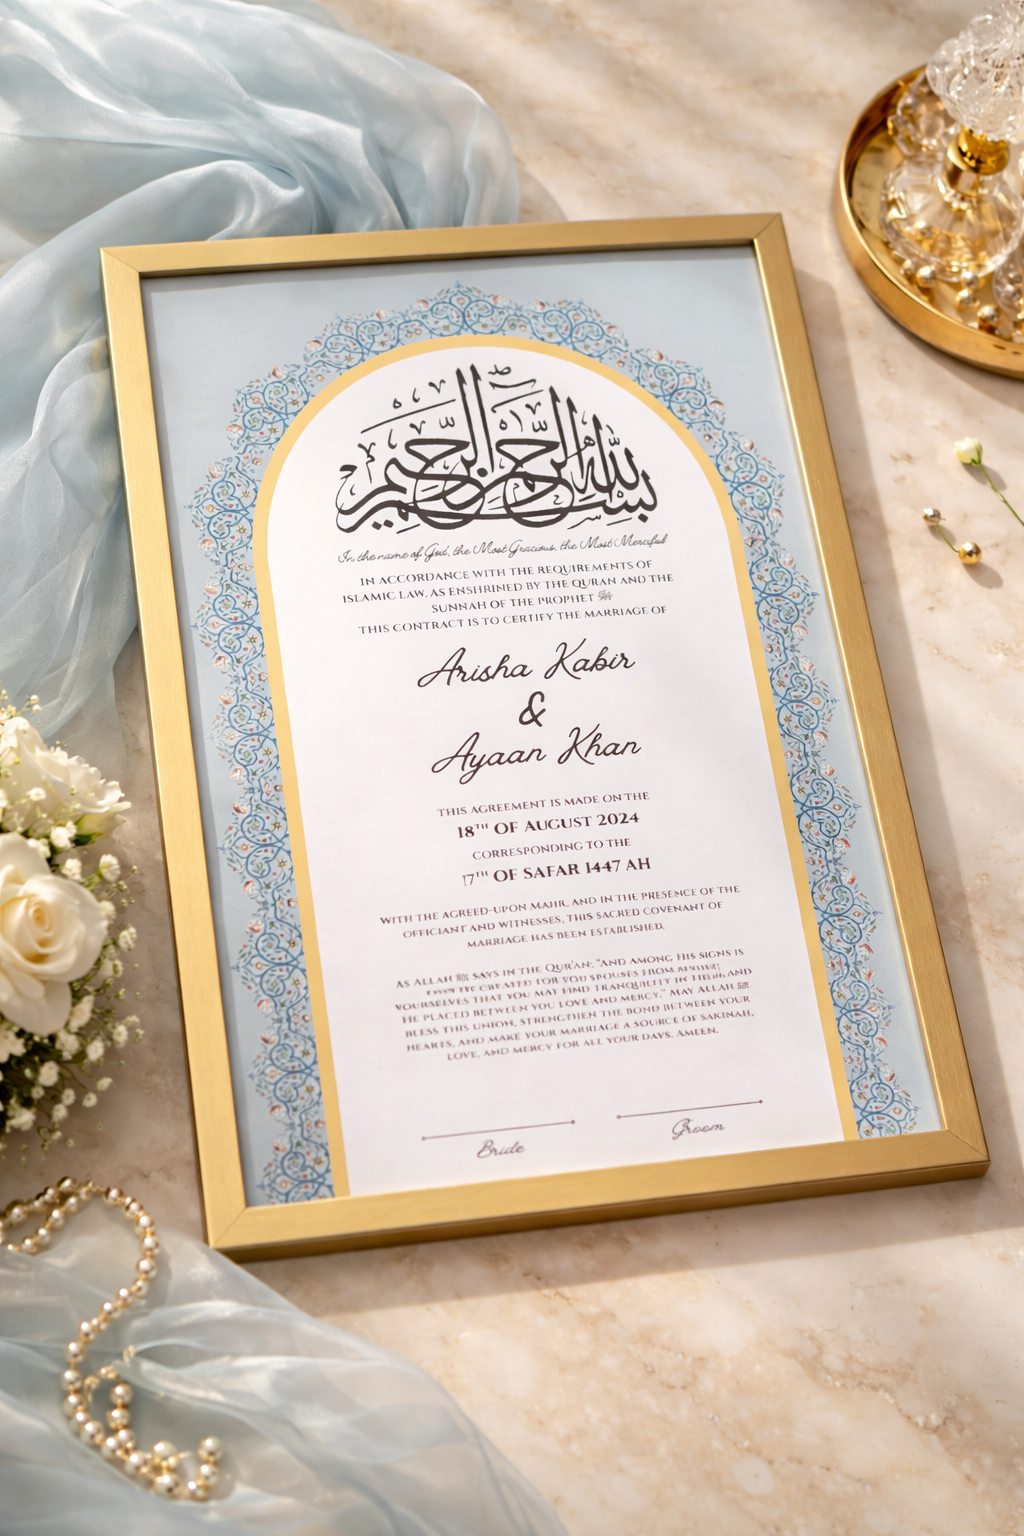 بسم الله الرحمن الرحيم
In the name of God, the Most Gracious, the Most Merciful
IN ACCORDANCE WITH THE REQUIREMENTS OF
ISLAMIC LAW, AS ENSHRINED BY THE QURAN AND THE
SUNNAH OF THE PROPHET ﷺ
THIS CONTRACT IS TO CERTIFY THE MARRIAGE OF
Arisha Kabir
&
Ayaan Khan
THIS AGREEMENT IS MADE ON THE
18TH OF AUGUST 2024
CORRESPONDING TO THE
17TH OF SAFAR 1447 AH
WITH THE AGREED-UPON MAHR, AND IN THE PRESENCE OF THE
OFFICIANT AND WITNESSES, THIS SACRED COVENANT OF
MARRIAGE HAS BEEN ESTABLISHED.
AS ALLAH SAYS IN THE QUR'AN: "AND AMONG HIS SIGNS IS
CREATED FOR YOU SPOUSES FROM AMONG
YOURSELVES THAT YOU MAY FIND TRANQUILITY IN THEM, AND
HE PLACED BETWEEN YOU LOVE AND MERCY." MAY ALLAH
BLESS THIS UNION, STRENGTHEN THE BOND BETWEEN YOUR
HEARTS, AND MAKE YOUR MARRIAGE A SOURCE OF SAKINAH,
LOVE, AND MERCY FOR ALL YOUR DAYS. AMEEN.
Bride
Groom